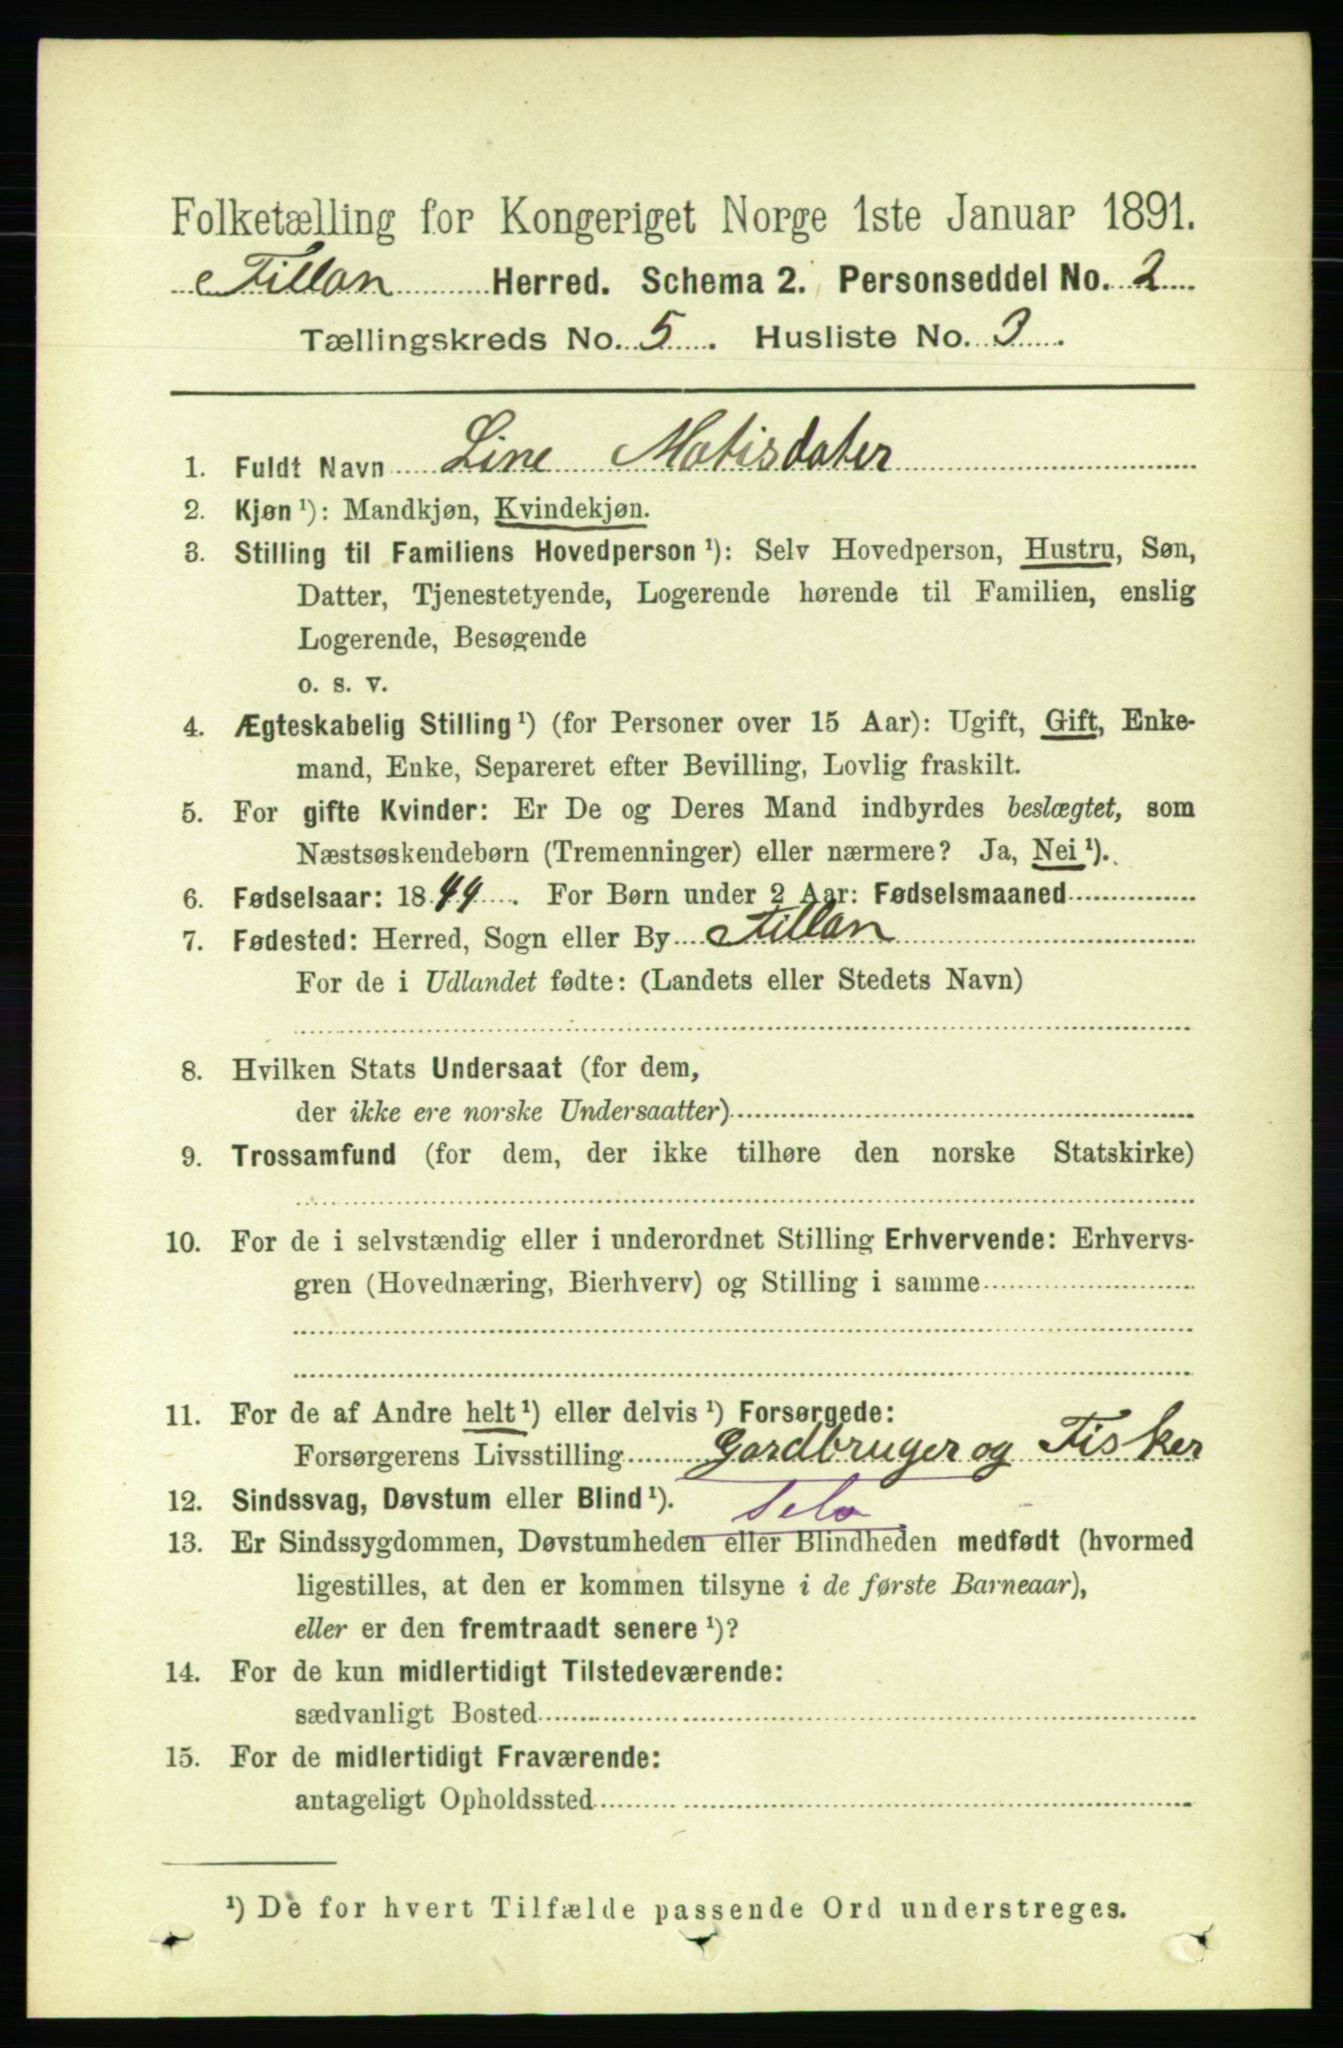 Folketælling for Kongeriget Norge 1ste Januar 1891.
Fillan Herred. Schema 2. Personseddel No. 2
Tællingskreds No. 5. Husliste No. 3.
1. Fuldt Navn Line Matisdater
2. Kjøn ¹): Mandkjøn, Kvindekjøn.
3. Stilling til Familiens Hovedperson ¹): Selv Hovedperson, Hustru, Søn,
Datter, Tjenestetyende, Logerende hørende til Familien, enslig
Logerende, Besøgende
o. s. v.
4. Ægteskabelig Stilling ¹) (for Personer over 15 Aar): Ugift, Gift, Enke-
mand, Enke, Separeret efter Bevilling, Lovlig fraskilt.
5. For gifte Kvinder: Er De og Deres Mand indbyrdes beslægtet, som
Næstsøskendebørn (Tremenninger) eller nærmere? Ja, Nei ¹).
6. Fødselsaar: 1844. For Børn under 2 Aar: Fødselsmaaned
7. Fødested: Herred, Sogn eller By Fillan
For de i Udlandet fødte: (Landets eller Stedets Navn)
8. Hvilken Stats Undersaat (for dem,
der ikke ere norske Undersaatter)
9. Trossamfund (for dem, der ikke tilhøre den norske Statskirke)
10. For de i selvstændig eller i underordnet Stilling Erhvervende: Erhvervs-
gren (Hovednæring, Bierhverv) og Stilling i samme
11. For de af Andre helt ¹) eller delvis ¹) Forsørgede:
Forsørgerens Livsstilling Gardbruger og Fisker
12. Sindssvag, Døvstum eller Blind ¹). Selv
13. Er Sindssygdommen, Døvstumheden eller Blindheden medfødt (hvormed
ligestilles, at den er kommen tilsyne i de første Barneaar),
eller er den fremtraadt senere ¹)?
14. For de kun midlertidigt Tilstedeværende:
sædvanligt Bosted
15. For de midlertidigt Fraværende:
antageligt Opholdssted
¹) De for hvert Tilfælde passende Ord understreges.